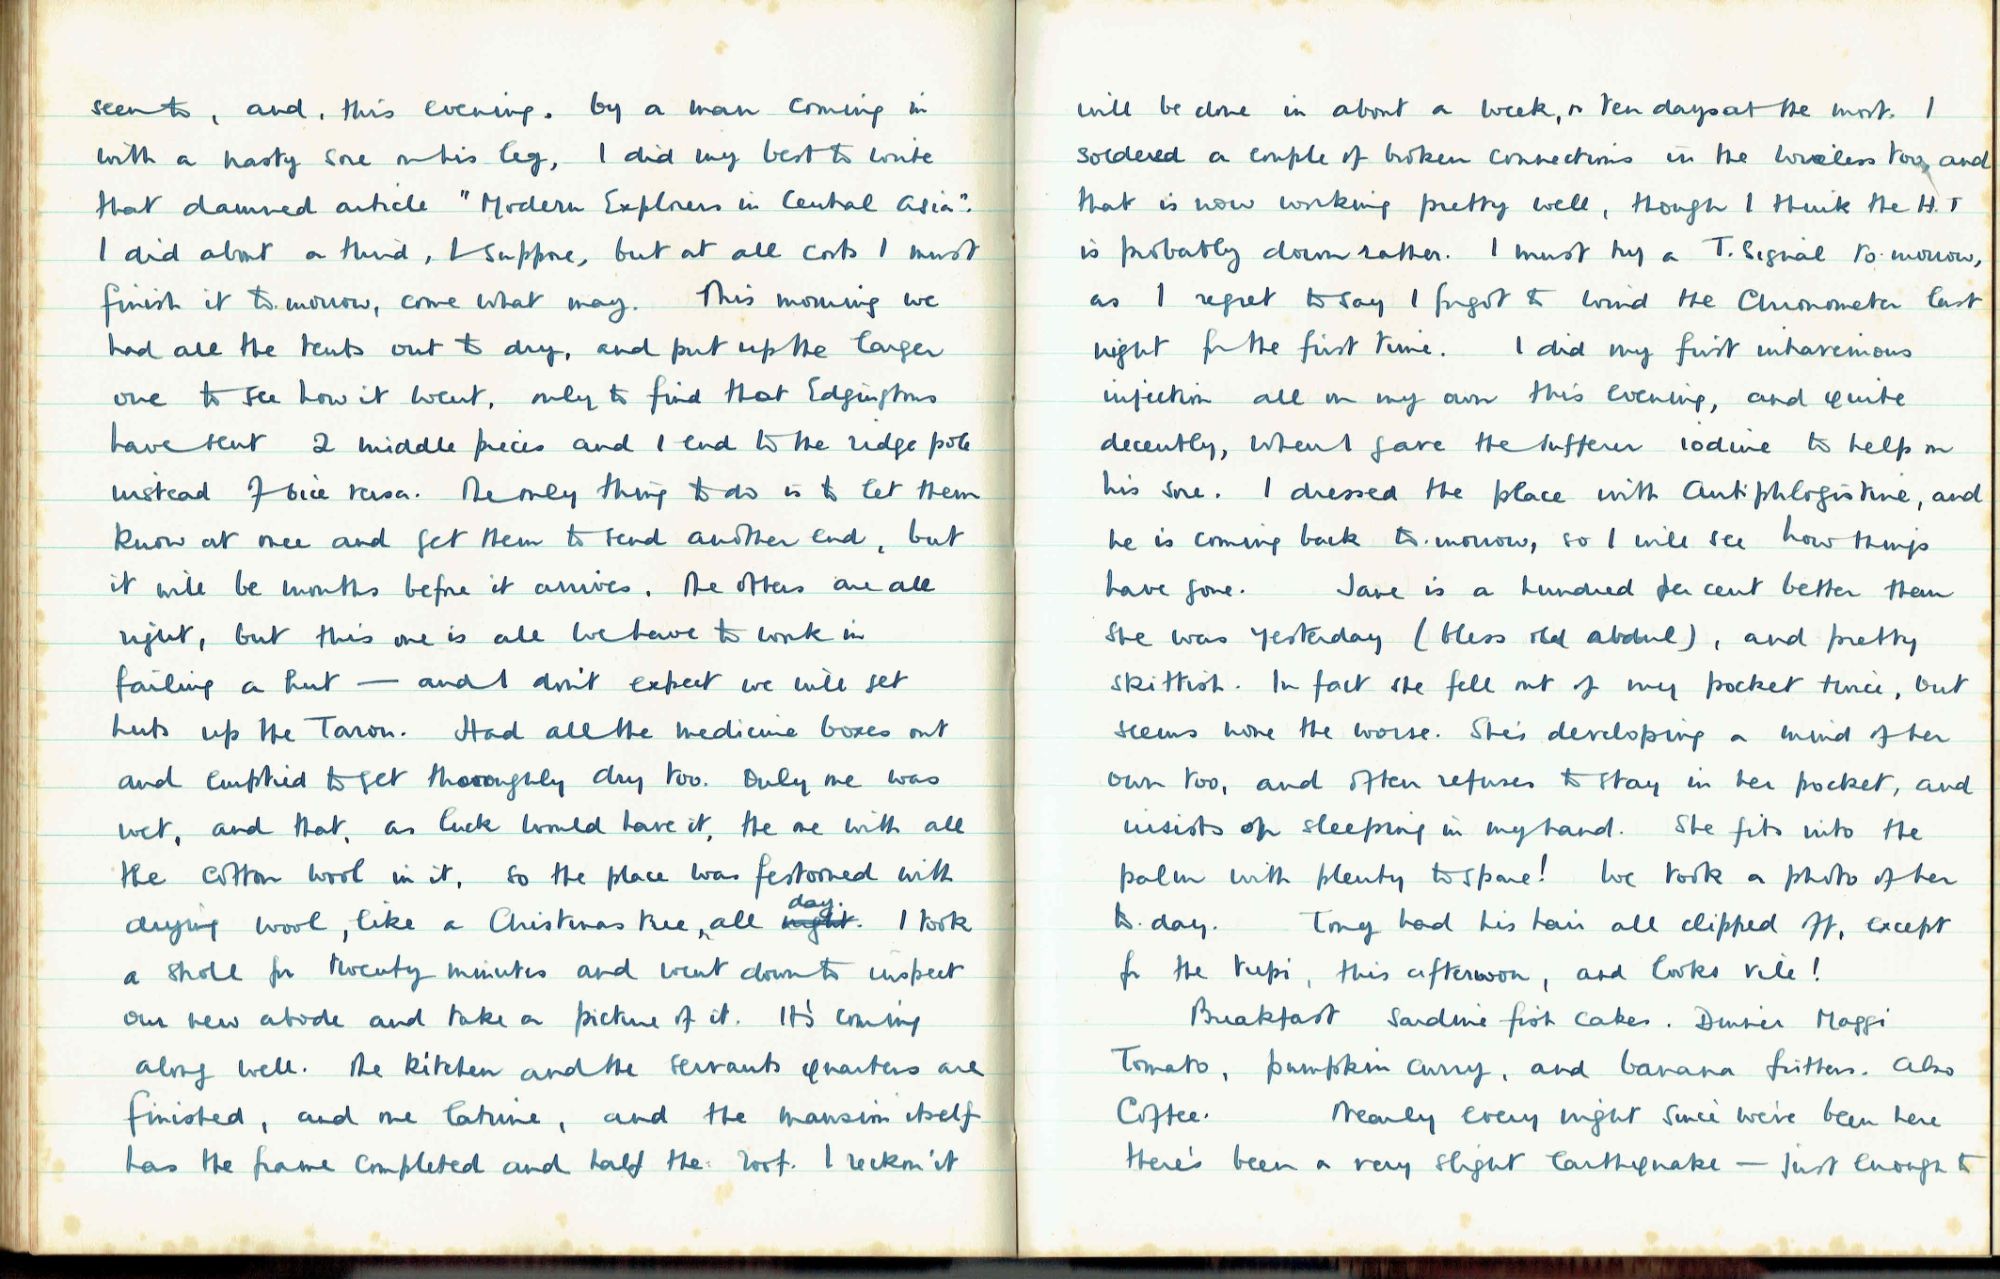 seen to, and, this evening, by a man coming in
with a nasty sore on his leg, I did my best to write
that damned article "Modern Explorers in Central Asia".
I did about a third, I suppose, but at all costs I must
finish it to-morrow, come what may. This morning we
had all the tents out to dry, and put up the larger
one to see how it went, only to find that Edgingtons
have sent 2 middle pieces and 1 end to the ridge pole
instead of vice versa. The only thing to do is to let them
know at once and get them to send another end, but
it will be months before it arrives. The others are all
right, but this one is all we have to work in
failing a hut — and I don't expect we will get
huts up the Taron. Had all the medicine boxes out
and emptied to get thoroughly dry too. Only one was
wet, and that, as luck would have it, the one with all
the cotton wool in it, so the place was festooned with
drying wool, like a Christmas tree, all night. day. I took
a stroll for twenty minutes and went down to inspect
our new abode and take a picture of it. It's coming
along well. The kitchen and the servants quarters are
finished, and one latrine, and the mansion itself
has the frame completed and half the roof. I reckon it
will be done in about a week, or ten days at the most. I
soldered a couple of broken connections in the wireless too, and
that is now working pretty well, though I think the H.T
is probably down rather. I must try a T. Signal to-morrow,
as I regret to say I forgot to wind the Chronometer last
night for the first time. I did my first intravenious
injection all on my own this evening, and quite
decently, when I gave the sufferer iodine to help on
his sore. I dressed the place with Antiphlogistine, and
he is coming back to-morrow, so I will see how things
have gone. Jane is a hundred per cent better than
she was yesterday (bless old abdul), and pretty
skittish. In fact she fell out of my pocket twice, but
seems none the worse. She's developing a mind of her
own too, and often refuses to stay in her pocket, and
insists on sleeping in my hand. She fits into the
palm with plenty to spare! We took a photo of her
to-day. Tony had his hair all clipped off, except
for the tupi, this afternoon, and looks vile!
Breakfast Sardine fish cakes. Dinner Maggi
Tomato, pumpkin curry, and banana fritters. Also
Coffee. Nearly every night since we've been here
there's been a very slight earthquake — just enough to